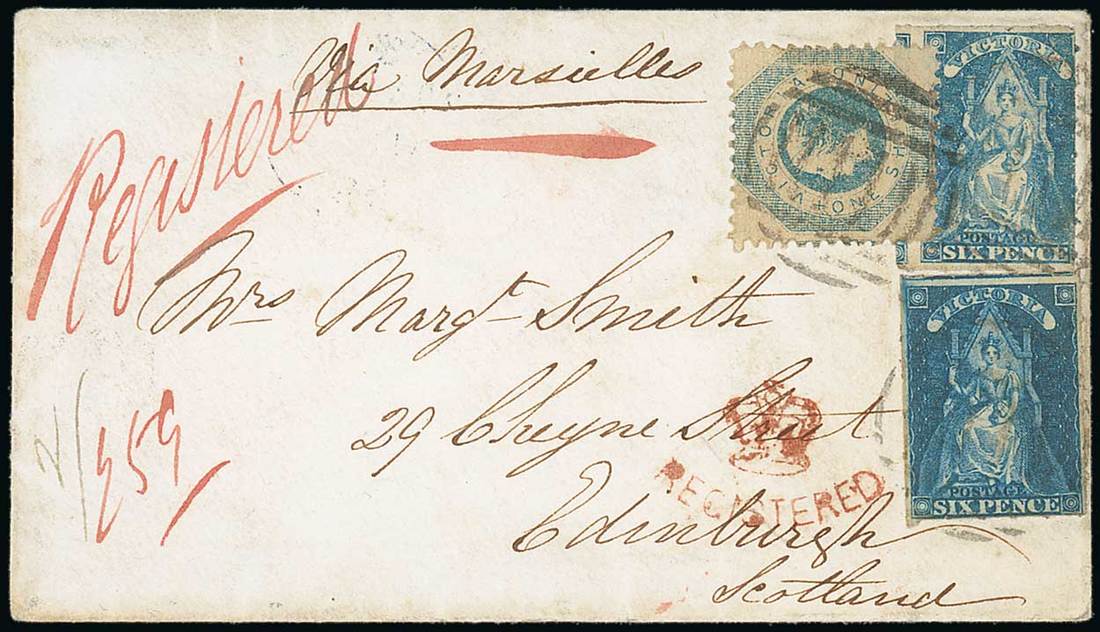 Via Marsielles
Registered
VICTORIA
ONE SHILLING
VICTORIA
POSTAGE
SIX PENCE
Mrs Margt Smith
29 Cheyne Street
Edinburgh
Scotland
REGISTERED
VICTORIA
POSTAGE
SIX PENCE
2/